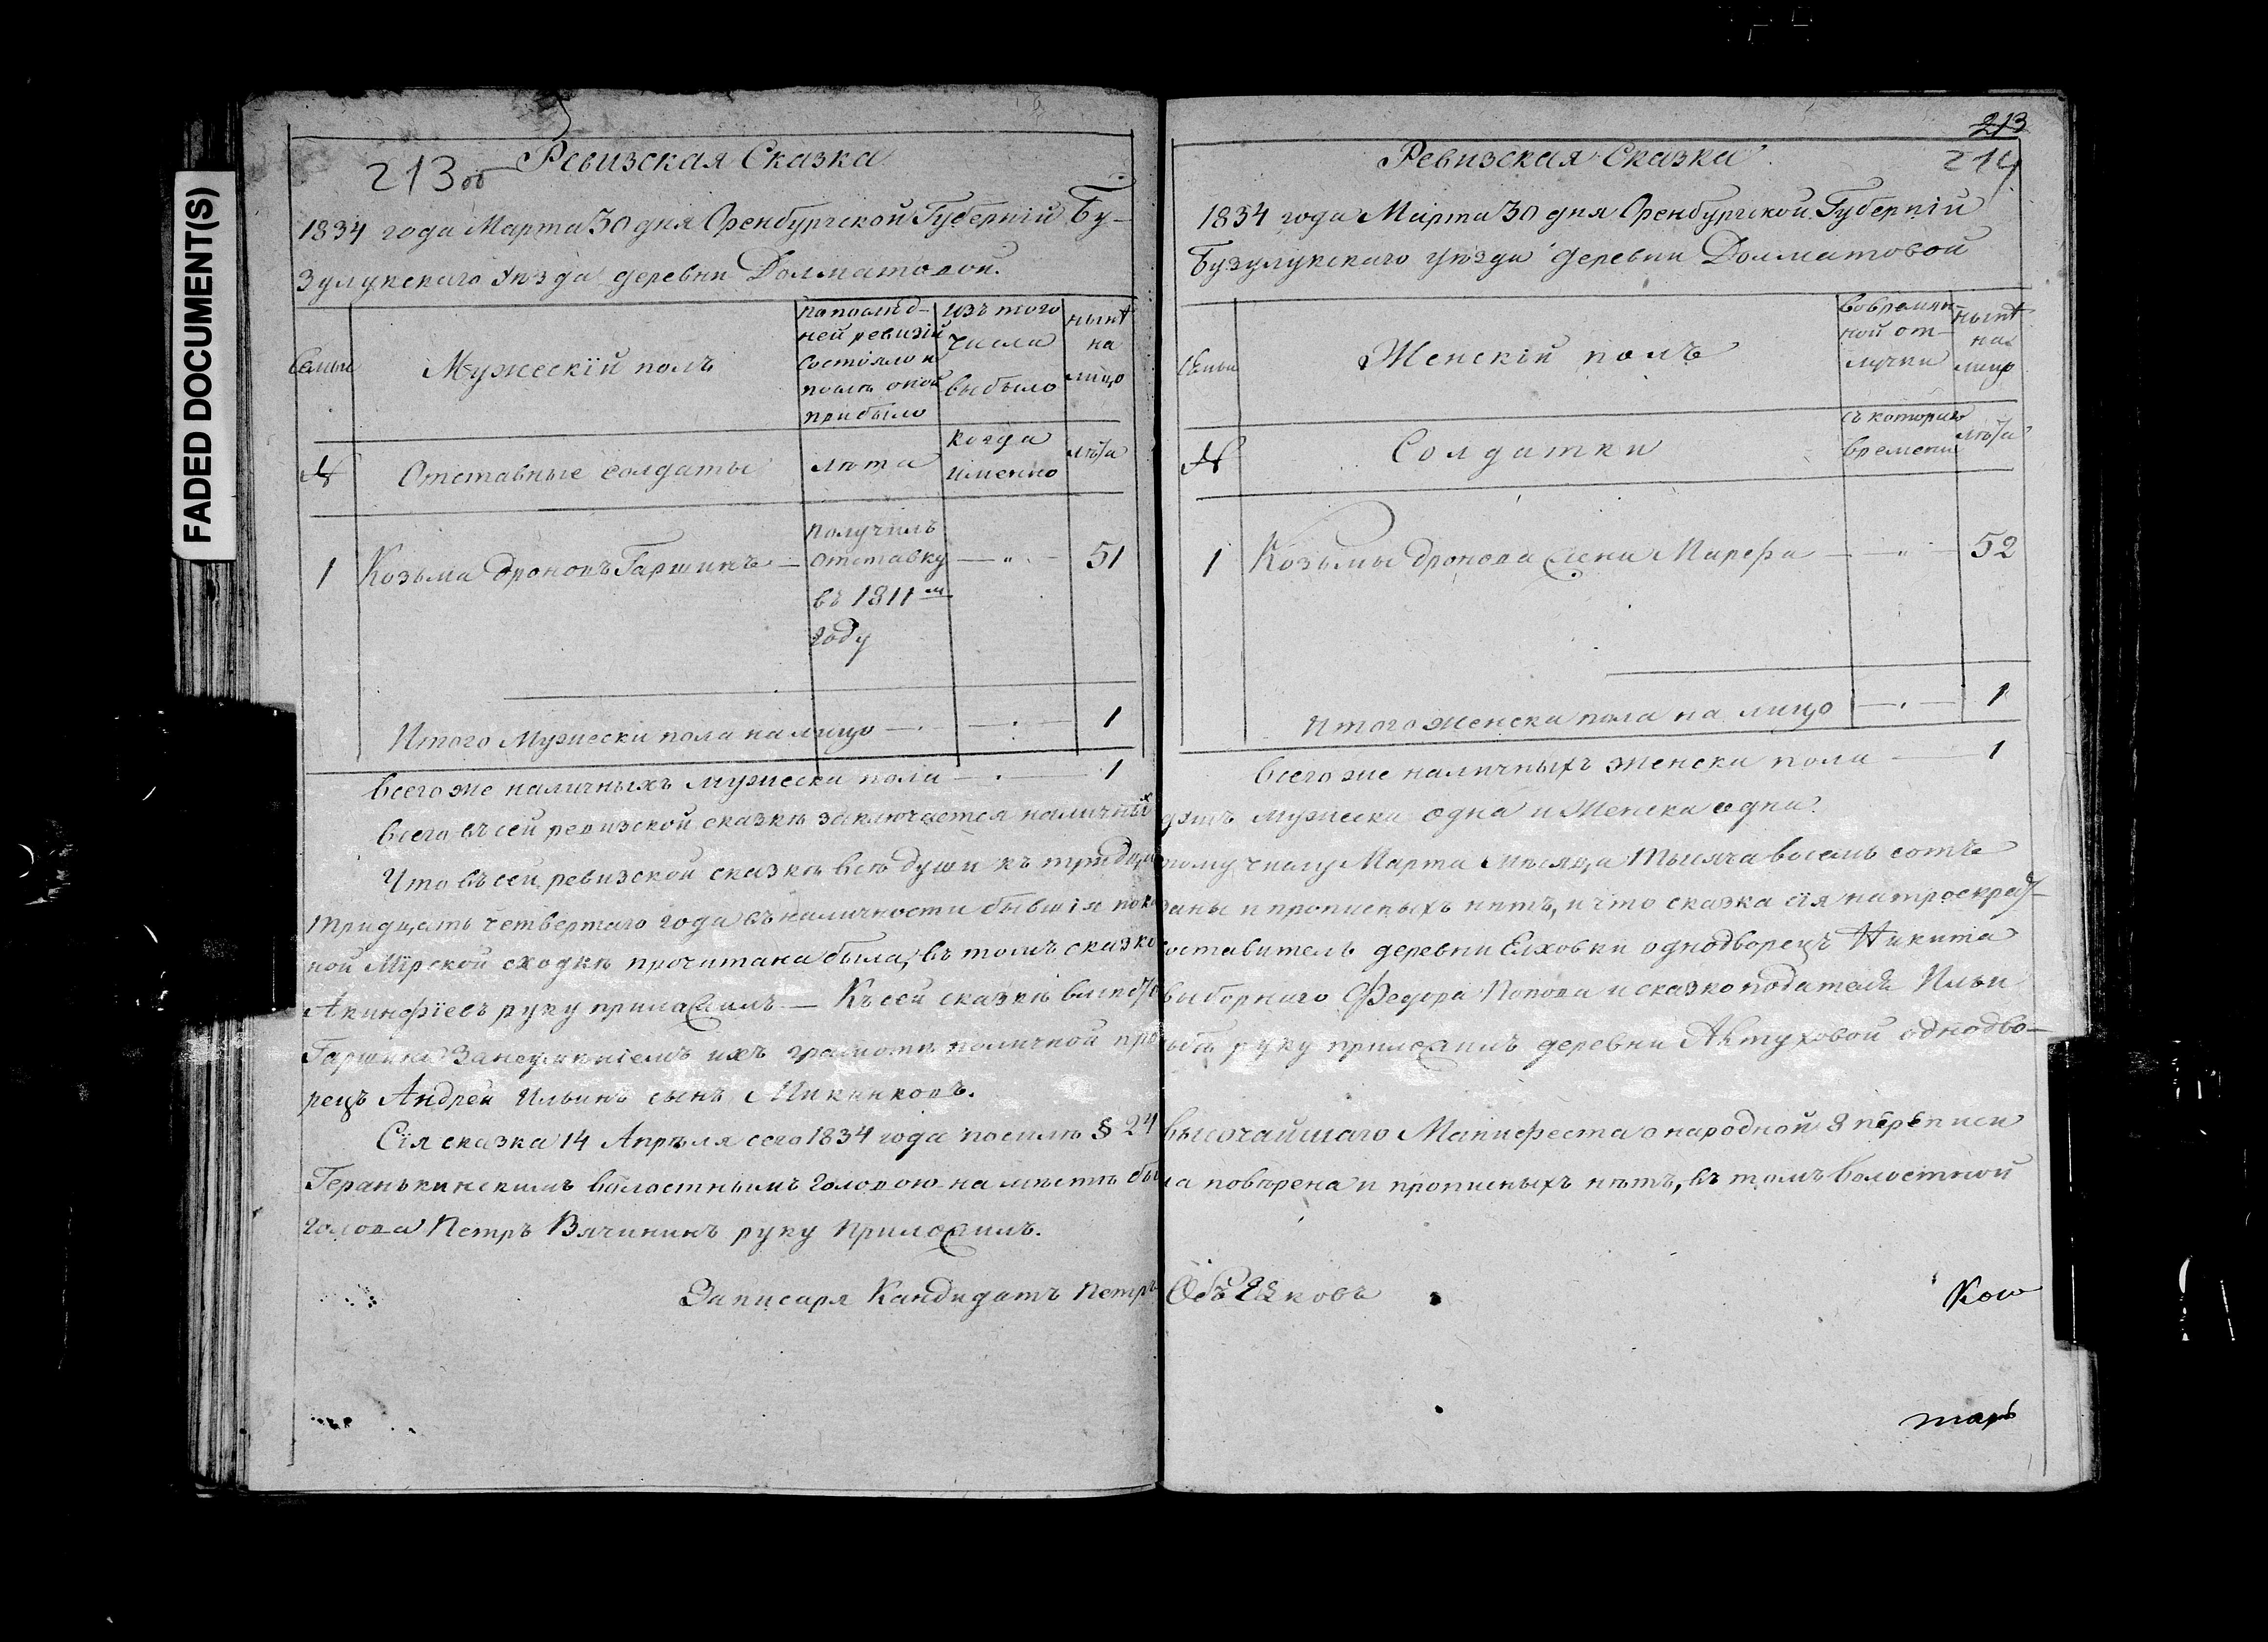 FADED DOCUMENT(S)
213об
Ревизская Сказка
1834 года Марта 30 дня Оренбургской Губерніи Бу-
зулукскаго уѣзда деревни Долматовой.
Семьи
Мужескій полъ
по послѣд-
ней ревизіи
состояло и
послѣ оной
прибыло
изъ того
числа
выбыло
нынѣ
на
лицо
№
Отставные солдаты
лѣта
когда
именно
лѣта
1
Козьма Дроновъ Гаршинъ —
получилъ
отставку
въ 1811м
году
— „ —
51
Итого Мужеска пола на лицо — . — — . — 1
Всего же наличныхъ мужеска пола — . — 1
213
Ревизская Сказка
214
1834 года Марта 30 дня Оренбургской Губерніи
Бузулукскаго уѣзда деревни Долматовой
Семьи
Женскій полъ
Во времян-
ной от-
лучки
нынѣ
на
лицо
№
Солдатки
съ котораго
времени
лѣта
1
Козьмы Дронова жена Марфа — — „ — 52
Итого женска пола на лицо — . — 1
Всего же наличныхъ женска пола — 1
Всего въ сей ревизской сказкѣ заключается наличныхъ душъ мужеска одна и Женска одна
Что въ сей ревизской сказкѣ всѣ души къ тридцатому числу Марта мѣсяца Тысяча восемь сотъ
тридцать четвертаго года въ наличности бывшія показаны и прописныхъ нѣтъ, и что сказка сія на троекрат-
ной Мірской сходкѣ прочитана была, въ томъ сказкосоставитель деревни Елховки однодворецъ Никита
Акинфіевъ руку приложилъ — Къ сей сказкѣ вмѣсто выборнаго Федора Попова и сказкоподателя Ильи
Гаршина за неумѣніемъ ихъ грамотѣ по личной прозьбѣ руку приложилъ деревни Актуховой однодво-
рецъ Андрей Ильинъ сынъ Микинковъ.
Сія сказка 14 Апрѣля сего 1834 года по силѣ § 24 высочайшаго Манифеста о народной 8 переписи
Геранькинскимъ волостнымъ головою на мѣстѣ была повѣрена и прописныхъ нѣтъ, въ томъ волостной
голова Петръ Вячининъ руку приложилъ.
За писаря Кандидатъ Петръ Объѣдковъ